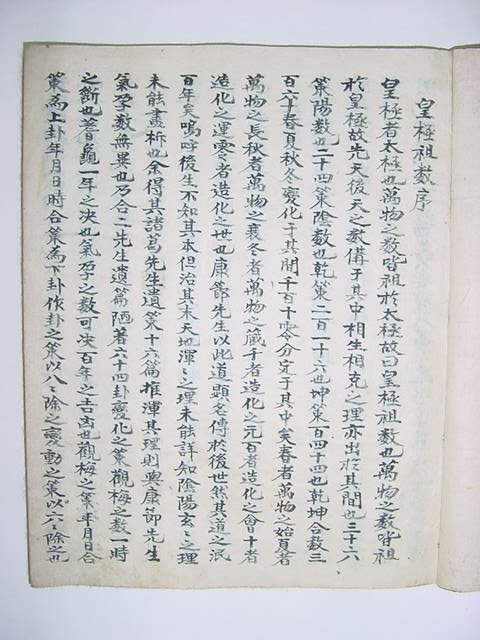 皇極祖数序
皇極者太極也萬物之数皆祖於太極故曰皇極祖数也萬物之数皆祖
於皇極故先天後天之数備于其中相生相克之理亦出於其間也三十六
策陽数也二十四策陰数也乾策二百一十六也坤策百四十四也乾坤合数三
百六十春夏秋冬變化于其間千百十零分定于其中矣春者萬物之始夏者
萬物之長秋者萬物之衰冬者萬物之藏千者造化之元百者造化之會十者
造化之運零者造化之世也康節先生以此道顕名傳於後世然其道之泯
百年矣嗚呼後生不知其本但治其末天地渾〻之理未能詳知陰陽玄〻之理
未能盡柝也余得其諸葛先生遺策十六篇推渾其理則與康節先生
氣孕数無異也乃合二先生遺篇陋著六十四卦變化之策觀梅之数一時
之斷也蓍龜一年之决也氣孕之数可决百年之吉凶也觀梅之策年月日合
策為上卦年月日時合策為下卦作卦之策以八〻除之變動之策以六〻除之也